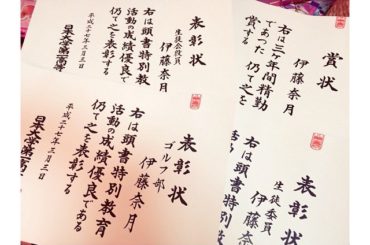 賞状
伊藤奈月
右は三ヶ年間精勤
であった仍て之を
賞する
表彰状
生徒会役員
伊藤奈月
右は頭書特別教
活動の成績優良で
仍て之を表彰する
平成二十七年三月三日
日本大学第一高等
表彰状
ゴルフ部
伊藤奈月
右は頭書特別教育
活動の成績優良である
仍て之を表彰する
平成二十七年三月三日
日本大学第一高
表彰状
生徒委員
伊藤奈
右は頭書
活動の
仍て之を